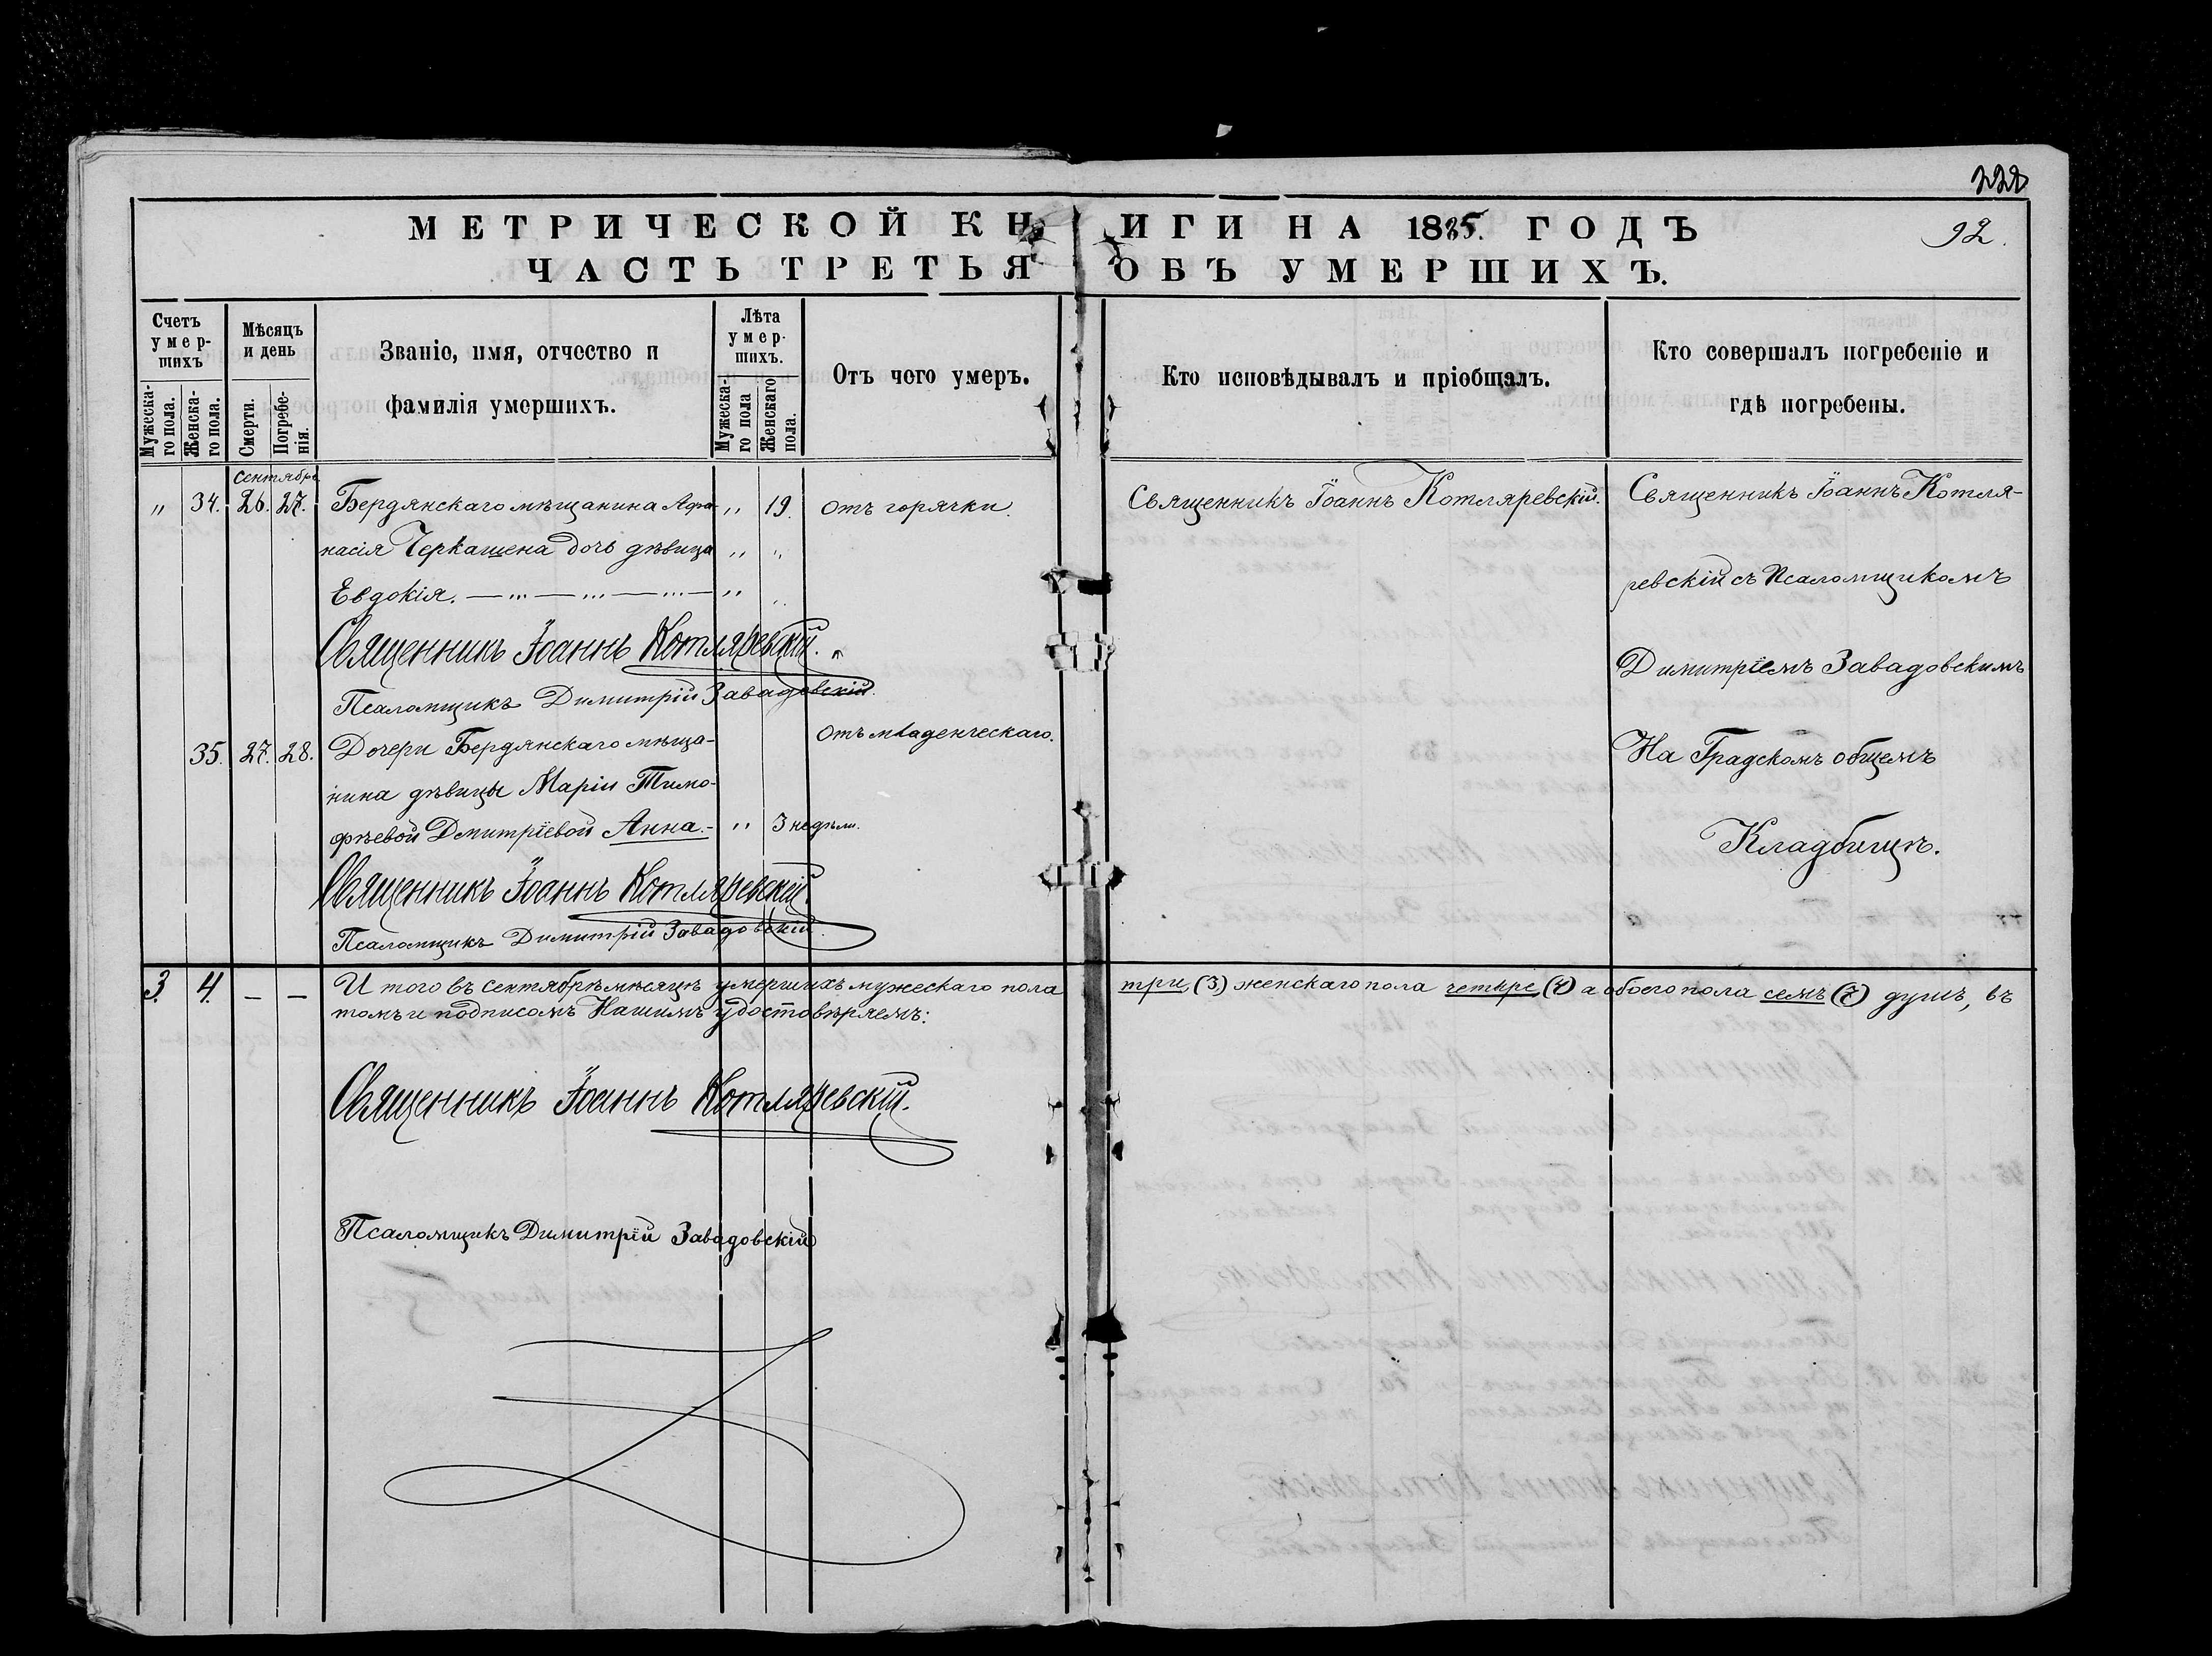 222
92.
МЕТРИЧЕСКОЙ КНИГИ НА 1885. ГОДЪ
ЧАСТЬ ТРЕТЬЯ ОБЪ УМЕРШИХЪ.
Счетъ умер-шихъ
Мужеска-го пола.
Женска-го пола.
Мѣсяцъ и день
Смерти.
Погребе-нія.
Званіе, имя, отчество и
фамилія умершихъ.
Лѣта умер-шихъ.
Мужеска-го пола
Женскаго пола.
Отъ чего умеръ.
Кто исповѣдывалъ и пріобщалъ.
Кто совершалъ погребеніе и
гдѣ погребены.
Сентябрь
" 34. 26. 27. Бердянскаго мѣщанина Афа- " 19. отъ горячки.
насія Черкашена дочь дѣвица " "
Евдокія. — ... — ... — ... — " "
Священникъ Іоаннъ Котляревскій.
Псаломщикъ Димитрій Завадовскій.
Священникъ Іоаннъ Котляревскій.
Священникъ Іоаннъ Котля-
ревскій съ Псаломщикомъ
Димитріемъ Завадовскимъ
На Градскомъ общемъ
Кладбищѣ.
35. 27. 28. Дочери Бердянскаго мѣща- отъ младенческаго.
нина дѣвицы Маріи Тимо-
фѣевой Дмитріевой Анна.- " 3 недѣли.
Священникъ Іоаннъ Котляревскій.
Псаломщикъ Димитрій Завадовскій.
3. 4. — — Итого въ сентябрѣ мѣсяцѣ умершихъ мужескаго пола три (3) женскаго пола четыре (4) а обоего пола семъ (7) душъ, въ
томъ и подписомъ Нашимъ удостовѣряемъ:
Священникъ Іоаннъ Котляревскій.
Псаломщикъ Димитрій Завадовскій